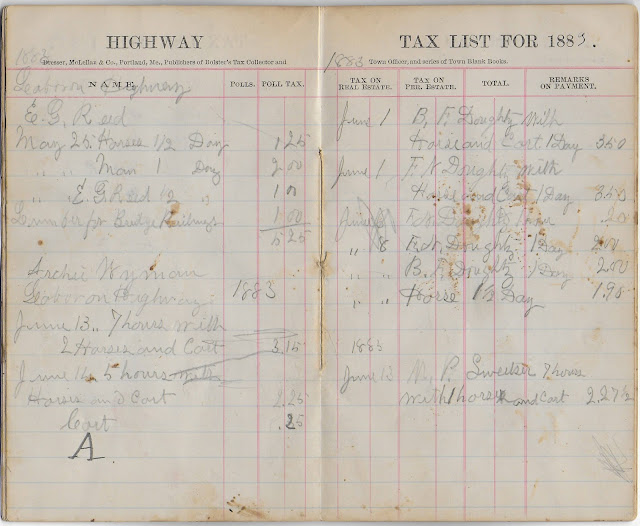 HIGHWAY
1883
Dresser, McLellan & Co., Portland, Me., Publishers of Bolster's Tax Collector and
Labor on Highway
NAME. POLLS. POLL TAX.
E. G. Reed
May 25 Horses 1/2 Day 1.25
" " Man 1 Day 2.00
" " E. G. Reed 1/2 "
Lumber for Bridge Railings 1.00
5.25
Archie Wyman
Labor on Highway 1883
June 13 " 7 hours with
2 Horses and Cart 3.15
June 14 5 hours with
Horses and Cart 2.25
Cart .25
A
TAX LIST FOR 1883.
1883 Town Offices, and series of Town Blank Books.
TAX ON REAL ESTATE. TAX ON PER. ESTATE. TOTAL. REMARKS ON PAYMENT.
June 1 B. F. Doughty with
Horse and Cart 1 Day 3.50
June 1 F. N. Doughty with
Horse and Cart 1 Day 3.50
June F. N. Doughty 1 hour .20
" 8 F. N. Doughty 1 Day 2.00
" " B. F. Doughty 1 Day 2.00
" " Horse Day 1.90
1883
June 13 P. Sweetser 7 hours
with 1 horse and Cart 2.27 1/2